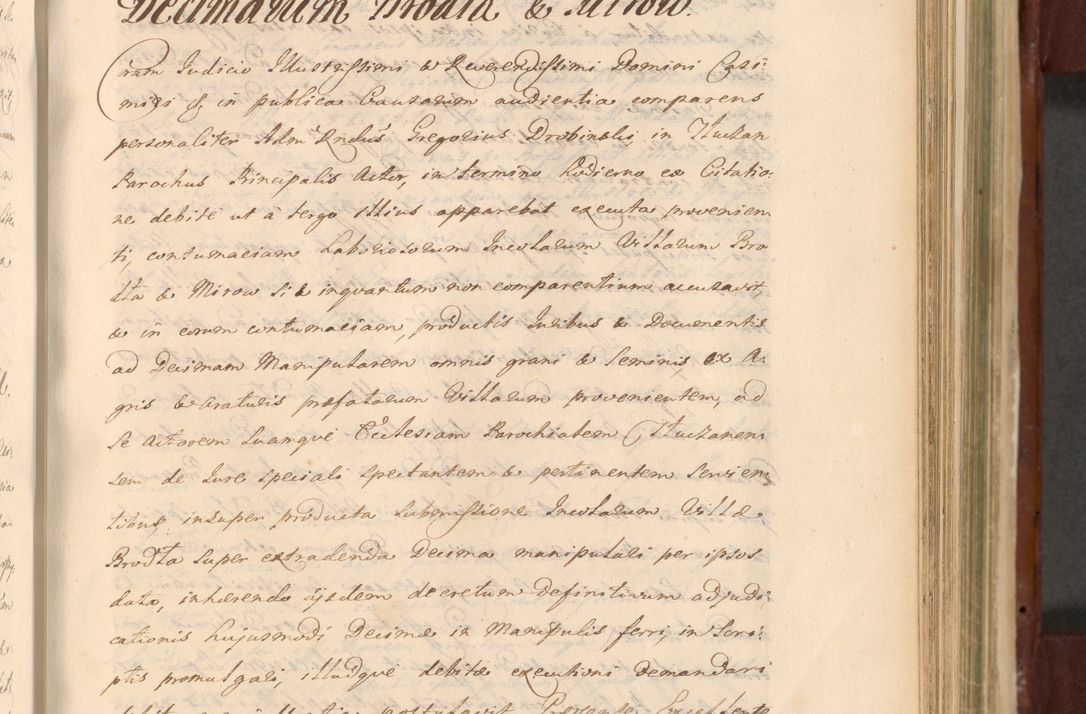 Decimarum Brodła & Mirow.
Coram Judicio Illustrissimi & Reverendissimi Domini Casi:
miri &c in publica Causarum audientia comparens
personaliter Adm Rndus Gregorius Drobinski, in Tłuczan
Parochus Principalis Actor, in termino hodierno ex Citatio:
ne debite ut à tergo illius apparebat executa provenien
ti, contumaciam Laboriosorum Incolarum Villarum Bro
dła & Mirow sic inquantum non comparentium accusavit,
& in eorum contumaciam, productis Juribus & Documentis
ad Decimam Manipularem omnis grani & Seminis, ex A:
gris & araturis præfatarum Villarum provenientem, ad
se actorem suamque Ecclesiam Parochialem Tłuczanen:
sem de Jure speciali spectantem & pertinentem servien
tibus, insuper producta submissione Incolarum Villæ
Brodła super extradenda Decima manipulali per ipsos
data, inhærendo ijsdem decretum definitivum adjudi:
cationis hujusmodi Decimæ in Manipulis ferri, in scri:
ptis promulgari, illudque debitæ executioni demandari
postulavit Presente Excellente